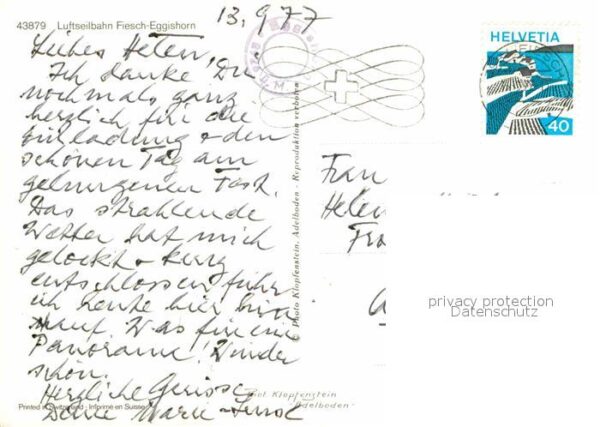 13.9.77
43879 Luftseilbahn Fiesch-Eggishorn
Liebes Heten,
Ich danke Dir
nochmals ganz
herzlich für die
Einladung + den
schönen Tag am
gelungenen Fest.
Das strahlende
Wetter hat mich
gelockt + kurz
entschlossen fuhr
ich heute hier hin
auf. Was für ein
Panorama! Wunder
schön.
Herzliche Grüsse
Deine Marie-
Printed in Switzerland - Imprimé en Suisse
© Photo Klopfenstein, Adelboden - Reproduktion verboten
Phot. Klopfenstein
Adelboden
HELVETIA
40
Frau
Helen
Fra
privacy protection
Datenschutz